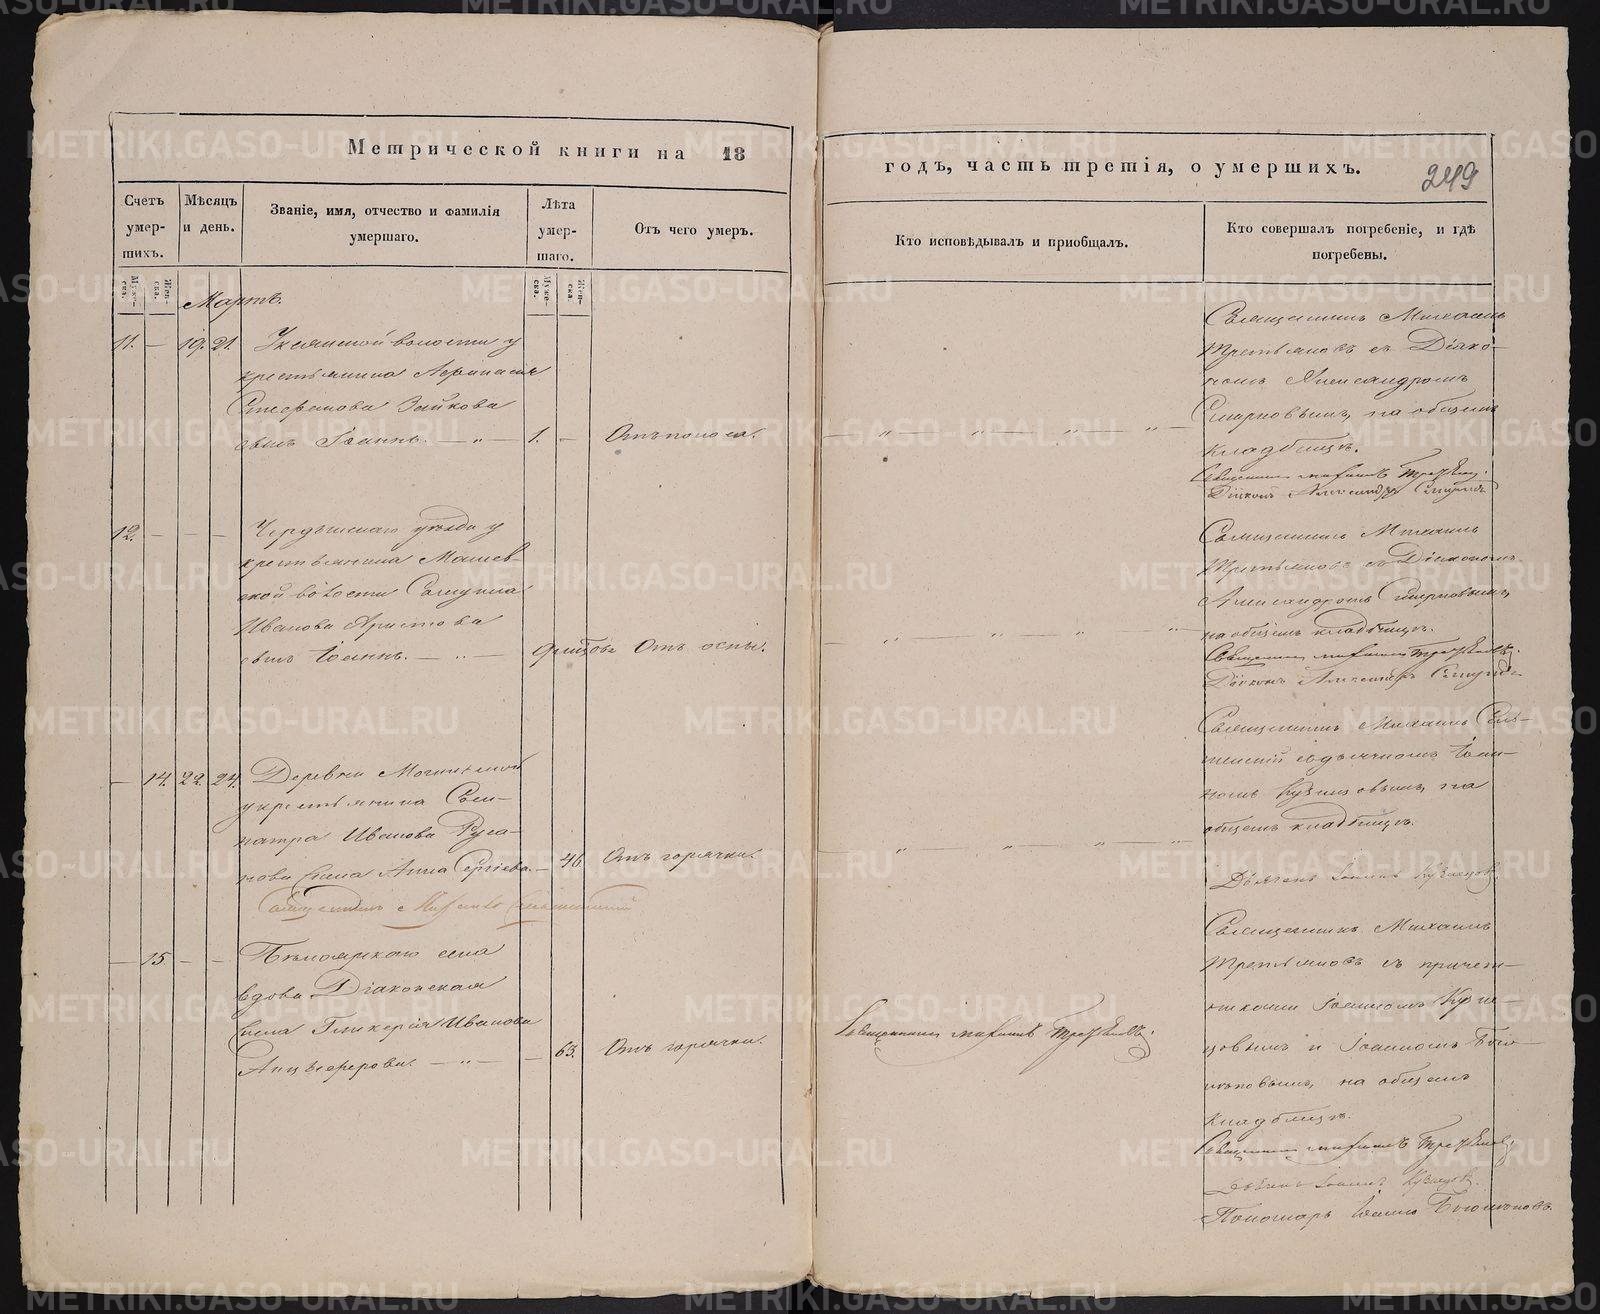 Метрической книги на 18
годъ, часть третія, о умершихъ.
249
Счетъ умер-шихъ.
Мѣсяцъ и день.
Званіе, имя, отчество и фамилія умершаго.
Лѣта умер-шаго.
Отъ чего умеръ.
Кто исповѣдывалъ и пріобщалъ.
Кто совершалъ погребеніе, и гдѣ погребены.
Муже-ска.
Жен-ска.
Муже-ска.
Жен-ска.
Мартъ.
11. — 19. 21.
волости у
крестьянина Аѳанасія
Стефанова Зайкова
сынъ Іоаннъ. — „ — 1. —
Отъ поноса.
Священникъ Михаилъ
Третьяковъ съ Діако-
номъ Александромъ
Смирновымъ, на общемъ
кладбищѣ.
Священникъ Михаилъ Третьяковъ.
Діаконъ Александръ Смирновъ
12. — — —
Чердынскаго уѣзда у
крестьянина
волости
Иванова
сынъ Іоаннъ. — „ —
Отъ оспы.
Священникъ Михаилъ
Третьяковъ съ Діакономъ
Александромъ Смирновымъ,
на общемъ кладбищѣ.
Священникъ Михаилъ Третьяковъ.
Діаконъ Александръ Смирновъ
— 14. 22. 24.
Деревни
у крестьянина
Иванова Руса-
нова жена Анна Сергіева. — 46.
Отъ горячки.
Священникъ Михаилъ
съ дьячкомъ Іоан-
номъ Кузнецовымъ, на
общемъ кладбищѣ.
Дьячекъ Іоаннъ Кузнецовъ
Священникъ Михаилъ
— 15. — —
села
вдова Діаконская
жена Гликерія Иванова
— „ — — 63.
Отъ горячки.
Священникъ Михаилъ Третьяковъ.
Священникъ Михаилъ
Третьяковъ съ причет-
никами Іоанномъ Кузне-
цовымъ и Іоанномъ
на общемъ
кладбищѣ.
Священникъ Михаилъ Третьяковъ.
Дьячекъ Іоаннъ Кузнецовъ.
Пономарь Іоаннъ
METRIKI.GASO-URAL.RU